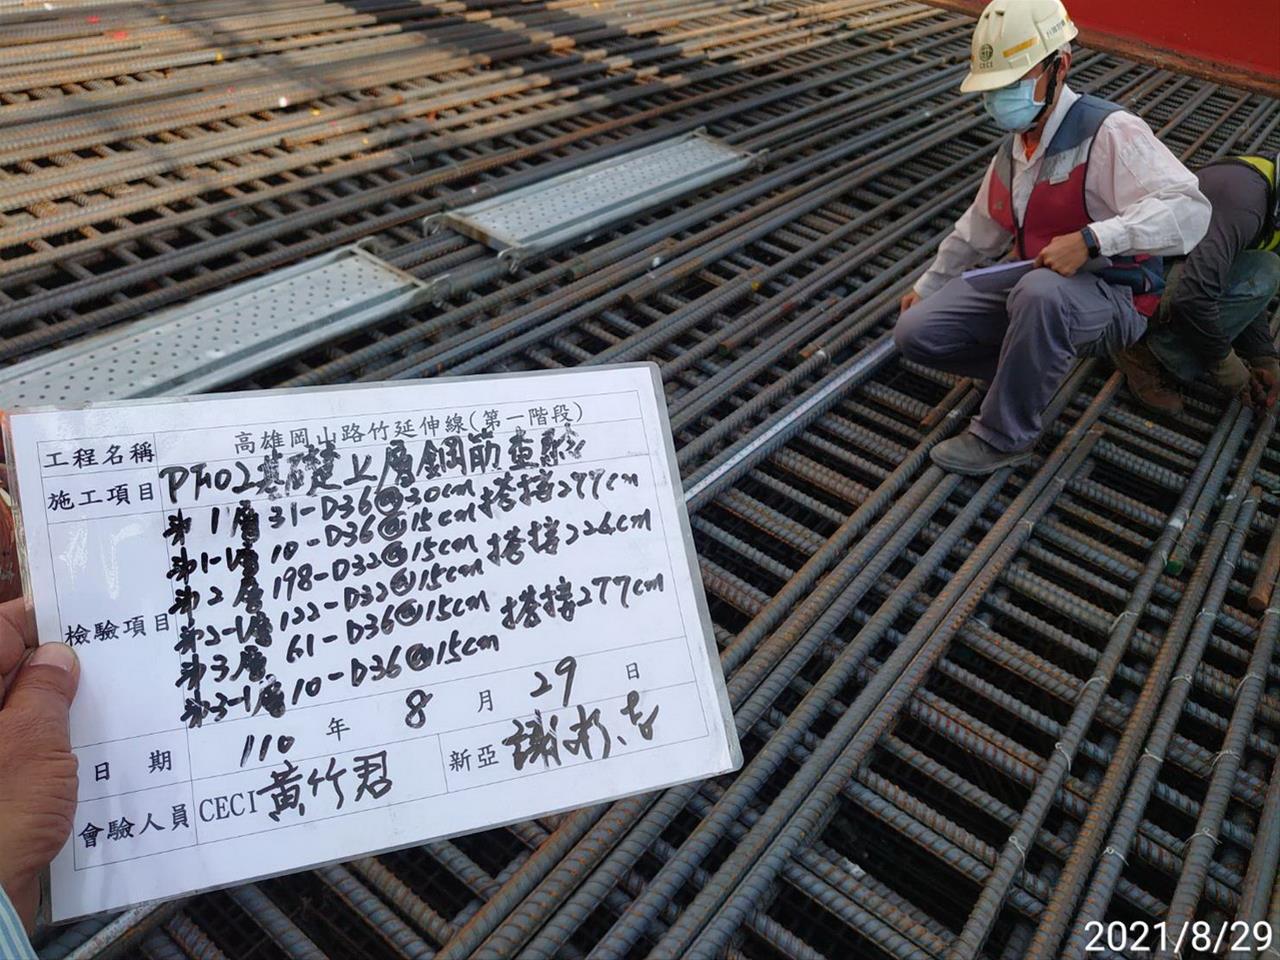 工程名稱 高雄岡山路竹延伸線(第一階段)
施工項目 PF102基礎上層鋼筋查驗
檢驗項目
第1層 31-D36@30cm 搭接277cm
第1-1層 10-D36@15cm
第2層 198-D32@15cm 搭接226cm
第2-1層 122-D32@15cm
第3層 61-D36@15cm 搭接277cm
第3-1層 10-D36@15cm
日期 110年8月29日
會驗人員 CECI 黃竹君 新亞 謝
CECI
2021/8/29